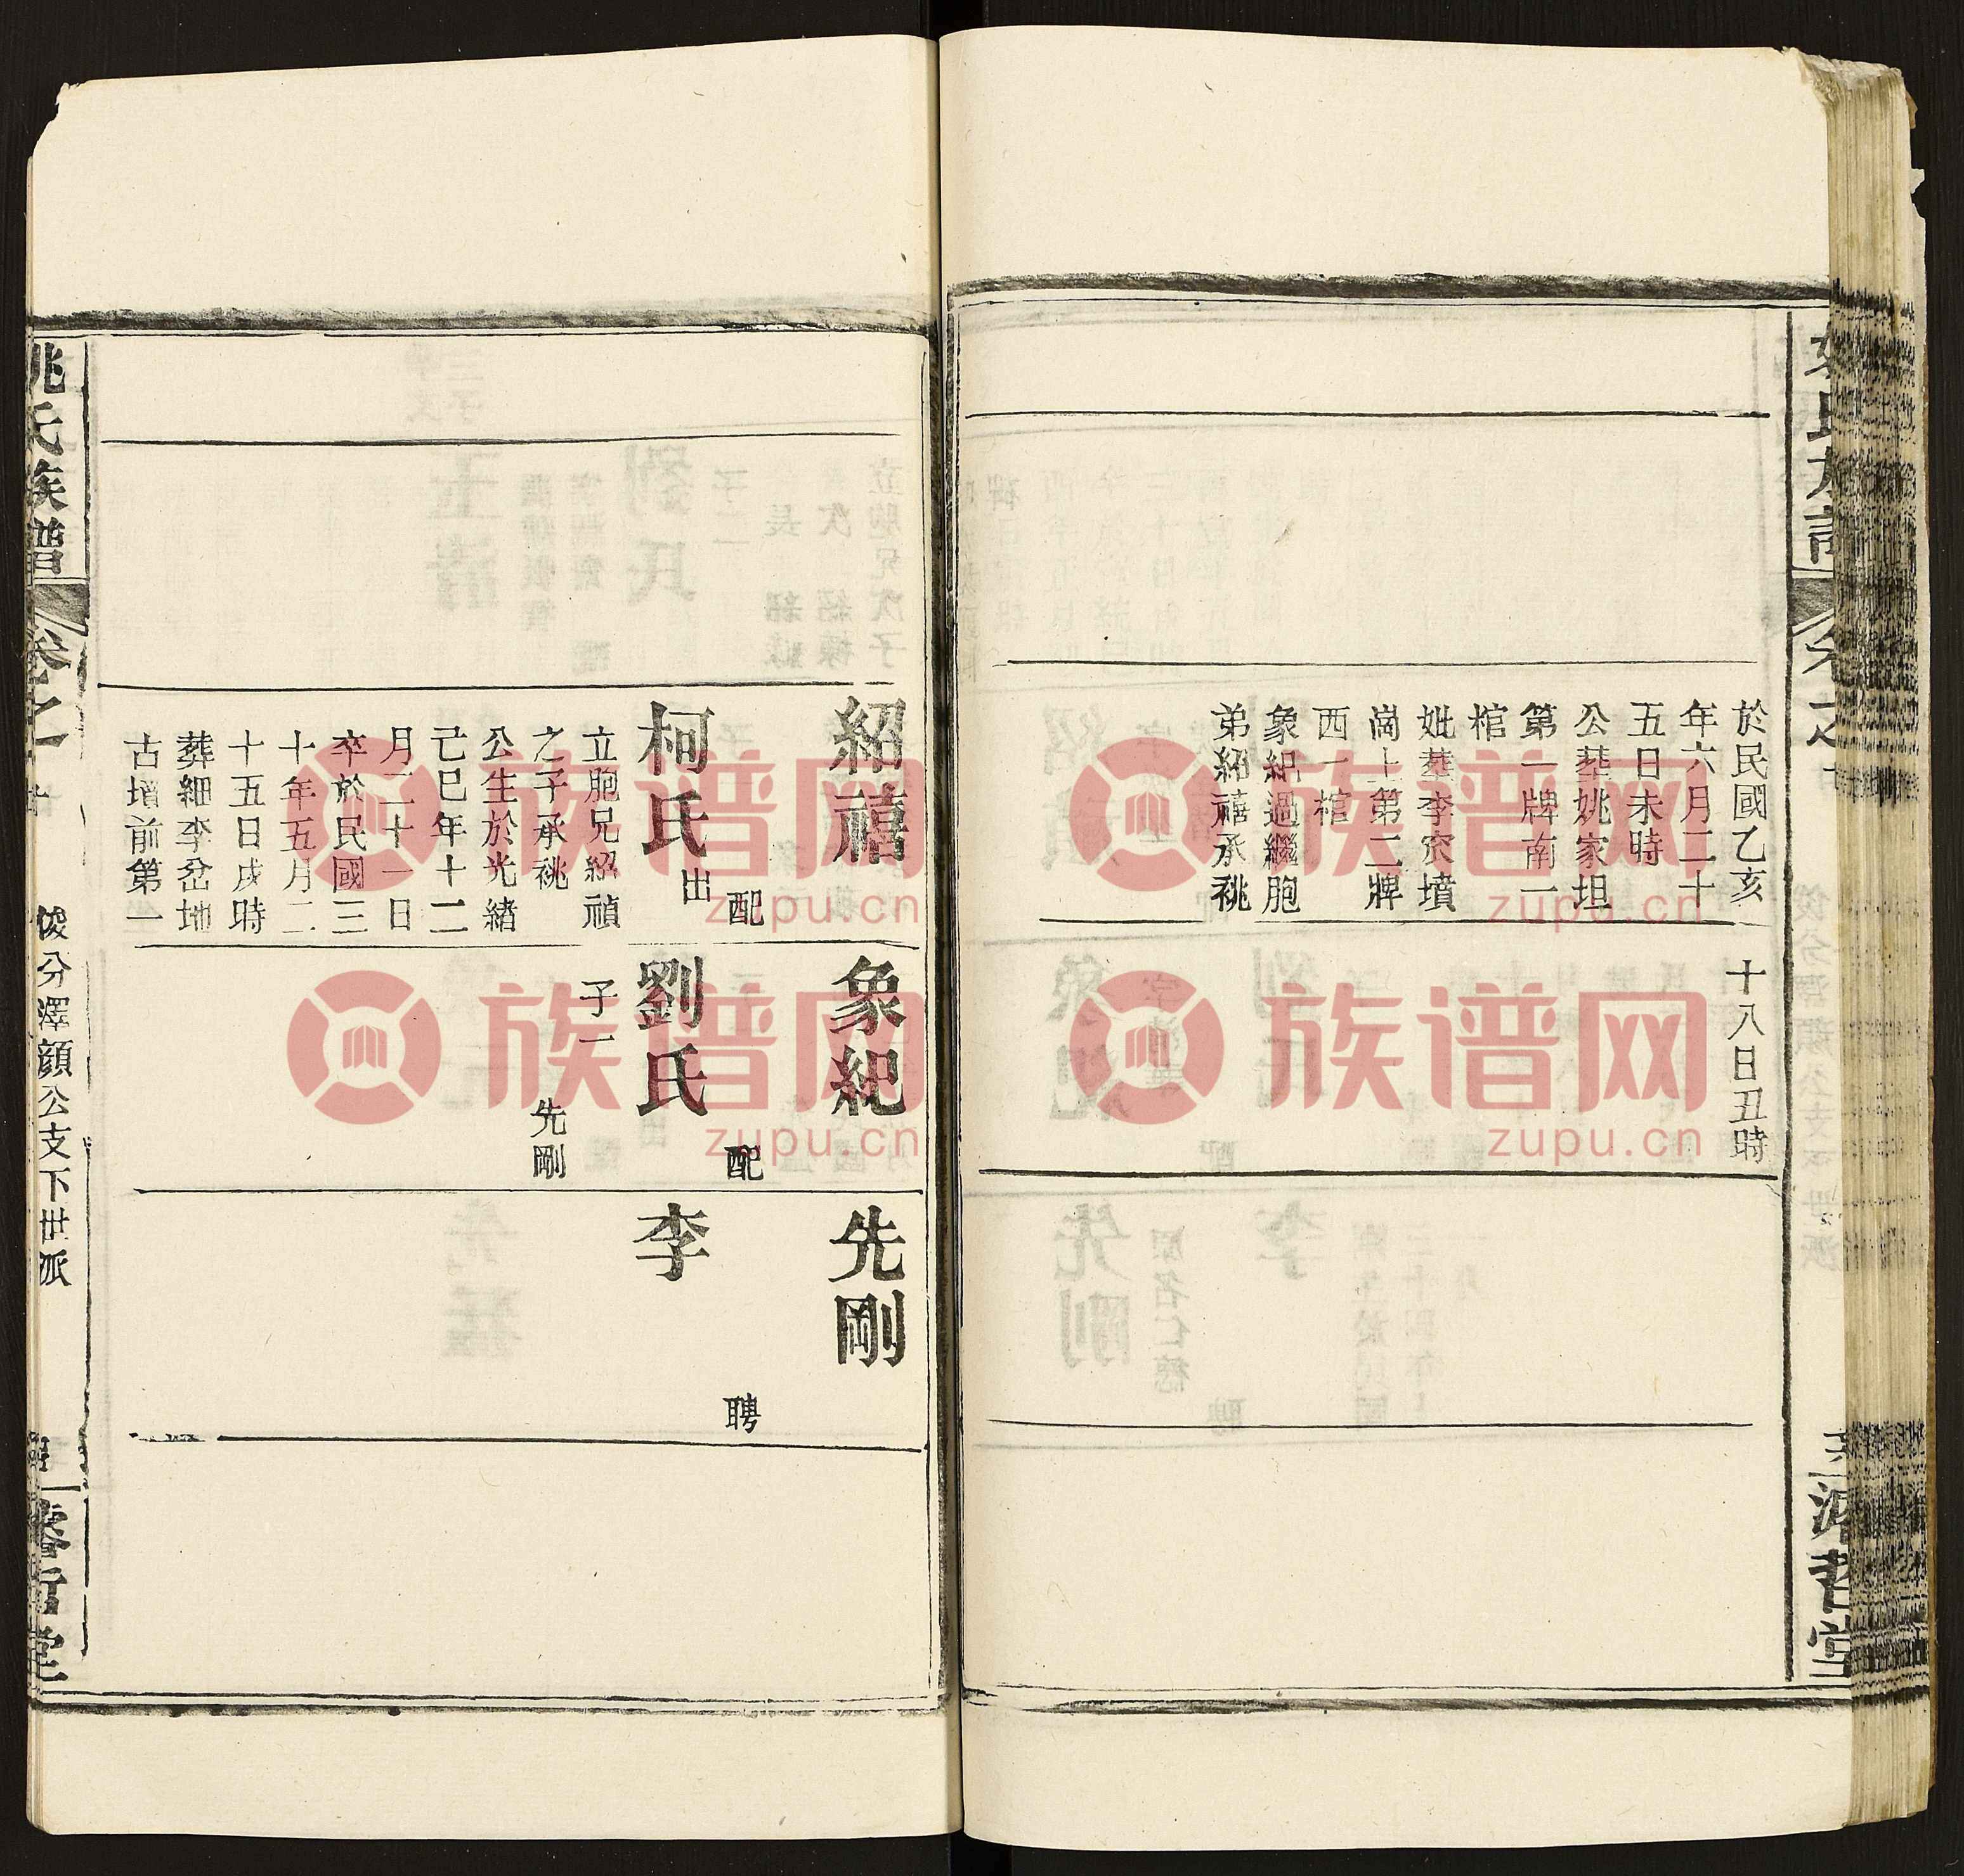 於民國乙亥
年六月二十
五日未時
公塟姚家坦
第一牌南一
棺
妣塟李家墳
崗上第二牌
西一棺
象紀過繼胞
弟紹禧承祧
十八日丑時
紹禧
配
柯氏
出
立胞兄紹禎
之子承祧
公生於光緒
己巳年十二
月二十一日
卒於民國三
十年五月二
十五日戌時
葬細李岔地
古墳前第一
象紀
配
劉氏
子一
先剛
先剛
聘
李
姚氏族譜
卷之一
俊分澤顔公支下世派
族谱网
zupu.cn
族谱网
zupu.cn
族谱网
zupu.cn
族谱网
zupu.cn